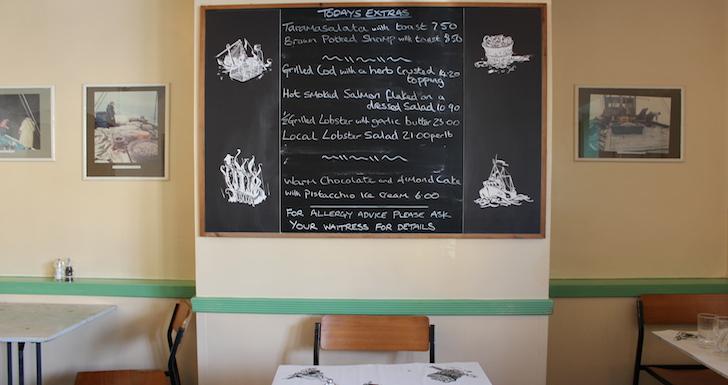 TODAYS EXTRAS
Taramasalata with toast 7.50
Brown Potted Shrimp with toast 8.50
Grilled Cod with a herb Crusted 14.20
topping
Hot smoked Salmon flaked on a
dressed Salad 10.90
½ Grilled Lobster with garlic butter 23.00
Local Lobster Salad 21.00 per lb
Warm Chocolate and Almond Cake
with Pistacchio Ice cream 6.00
FOR ALLERGY ADVICE PLEASE ASK
YOUR WAITRESS FOR DETAILS